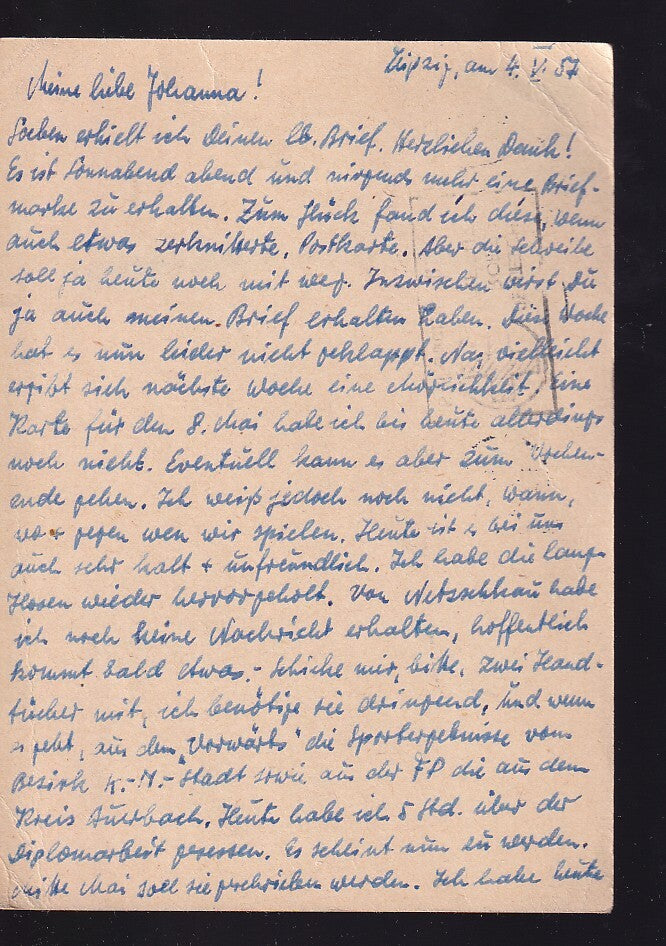 Leipzig, am 4. V. 57
Meine liebe Johanna!
Soeben erhielt ich Deinen lb. Brief. Herzlichen Dank!
Es ist Sonnabend abend und nirgends mehr eine Brief-
marke zu erhalten. Zum Glück fand ich diese, wenn
auch etwas zerknitterte, Postkarte. Aber die Schreibe
soll ja heute noch mit weg. Inzwischen wirst Du
ja auch meinen Brief erhalten haben. Diese Woche
hat es nun leider nicht geklappt. Na, vielleicht
ergibt sich nächste Woche eine Möglichkeit. Eine
Karte für den 8. Mai habe ich bis heute allerdings
noch nicht. Eventuell kann es aber zum Wochen-
ende gehen. Ich weiß jedoch noch nicht, wann,
wo + gegen wen wir spielen. Heute ist es bei uns
auch sehr kalt + unfreundlich. Ich habe die lang.
Hosen wieder hervorgeholt. Von Netzschkau habe
ich noch keine Nachricht erhalten, hoffentlich
kommt bald etwas.- Schicke mir, bitte, zwei Hand-
tücher mit, ich benötige sie dringend, und wenn
es geht, aus dem "Vorwärts" die Sportergebnisse vom
Bezirk K.-M.-Stadt sowie aus der FP die aus dem
Kreis Auerbach. Heute habe ich 5 Std. über der
Diplomarbeit gesessen. Es scheint nun zu werden.
Mitte Mai soll sie geschrieben werden. Ich habe heute